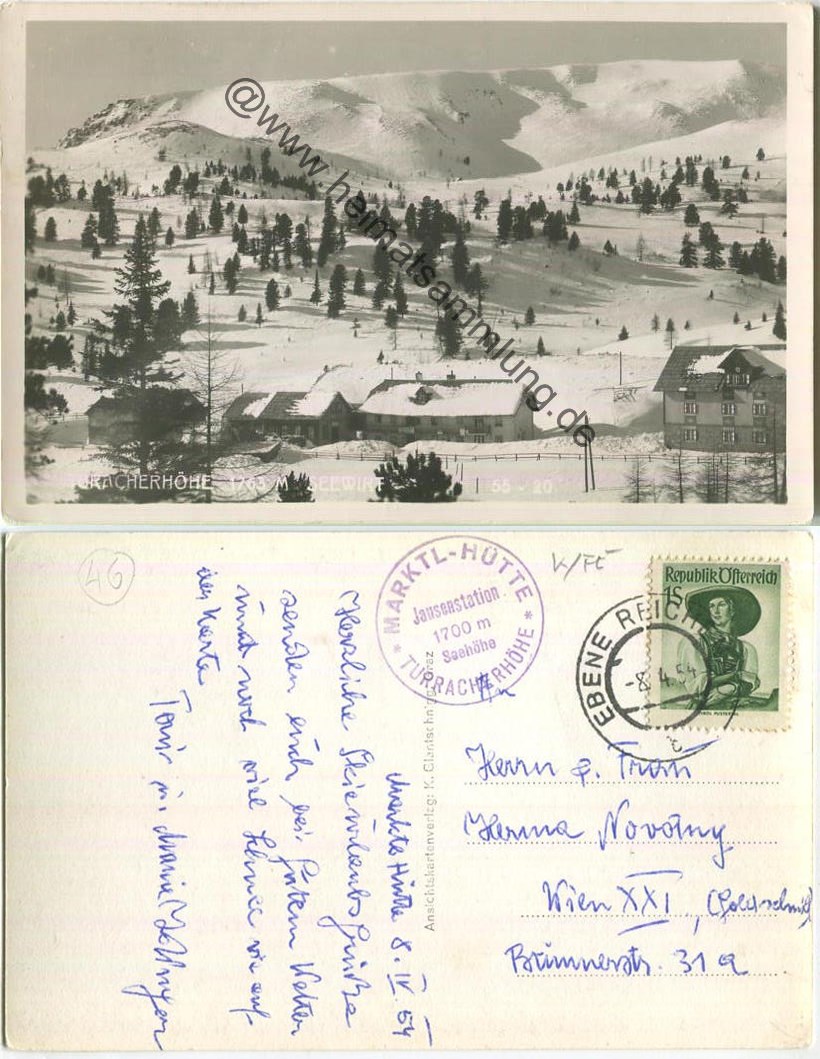 @www.heimatsammlung.de
TURACHERHÖHE 1763 M SEEWIRT 55 - 20
46
MARKTL-HÜTTE
Jausenstation
1700 m
Seehöhe
* TURRACHERHÖHE *
Republik Österreich
1S
EBENE REICH
-8. 4. 54
c
Ansichtskartenverlag: K. Glantschnig, Graz
Marktl Hütte 8. IV. 54
Herzliche Skiurlaubsgrüße
senden euch bei gutem Wetter
und noch viel Schnee wie auf
der Karte
Toni u. Maria
An
Herrn u. Frau
Herma Novotny
Wien XXI, (Goldschmid)
Brünnerstr. 31a